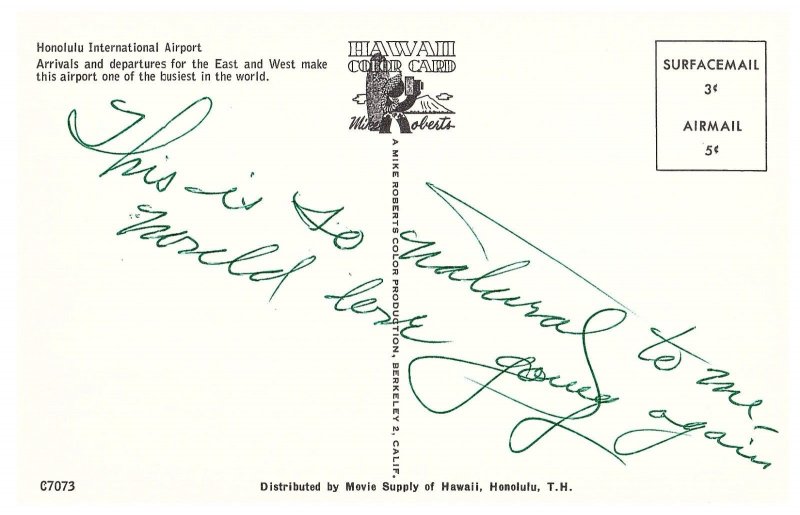 Honolulu International Airport
Arrivals and departures for the East and West make
this airport one of the busiest in the world.
HAWAII
COLOR CARD
Mike Roberts
SURFACEMAIL
3¢
AIRMAIL
5¢
This is so natural to me
would love going again
A MIKE ROBERTS COLOR PRODUCTION, BERKELEY 2, CALIF.
C7073
Distributed by Movie Supply of Hawaii, Honolulu, T.H.